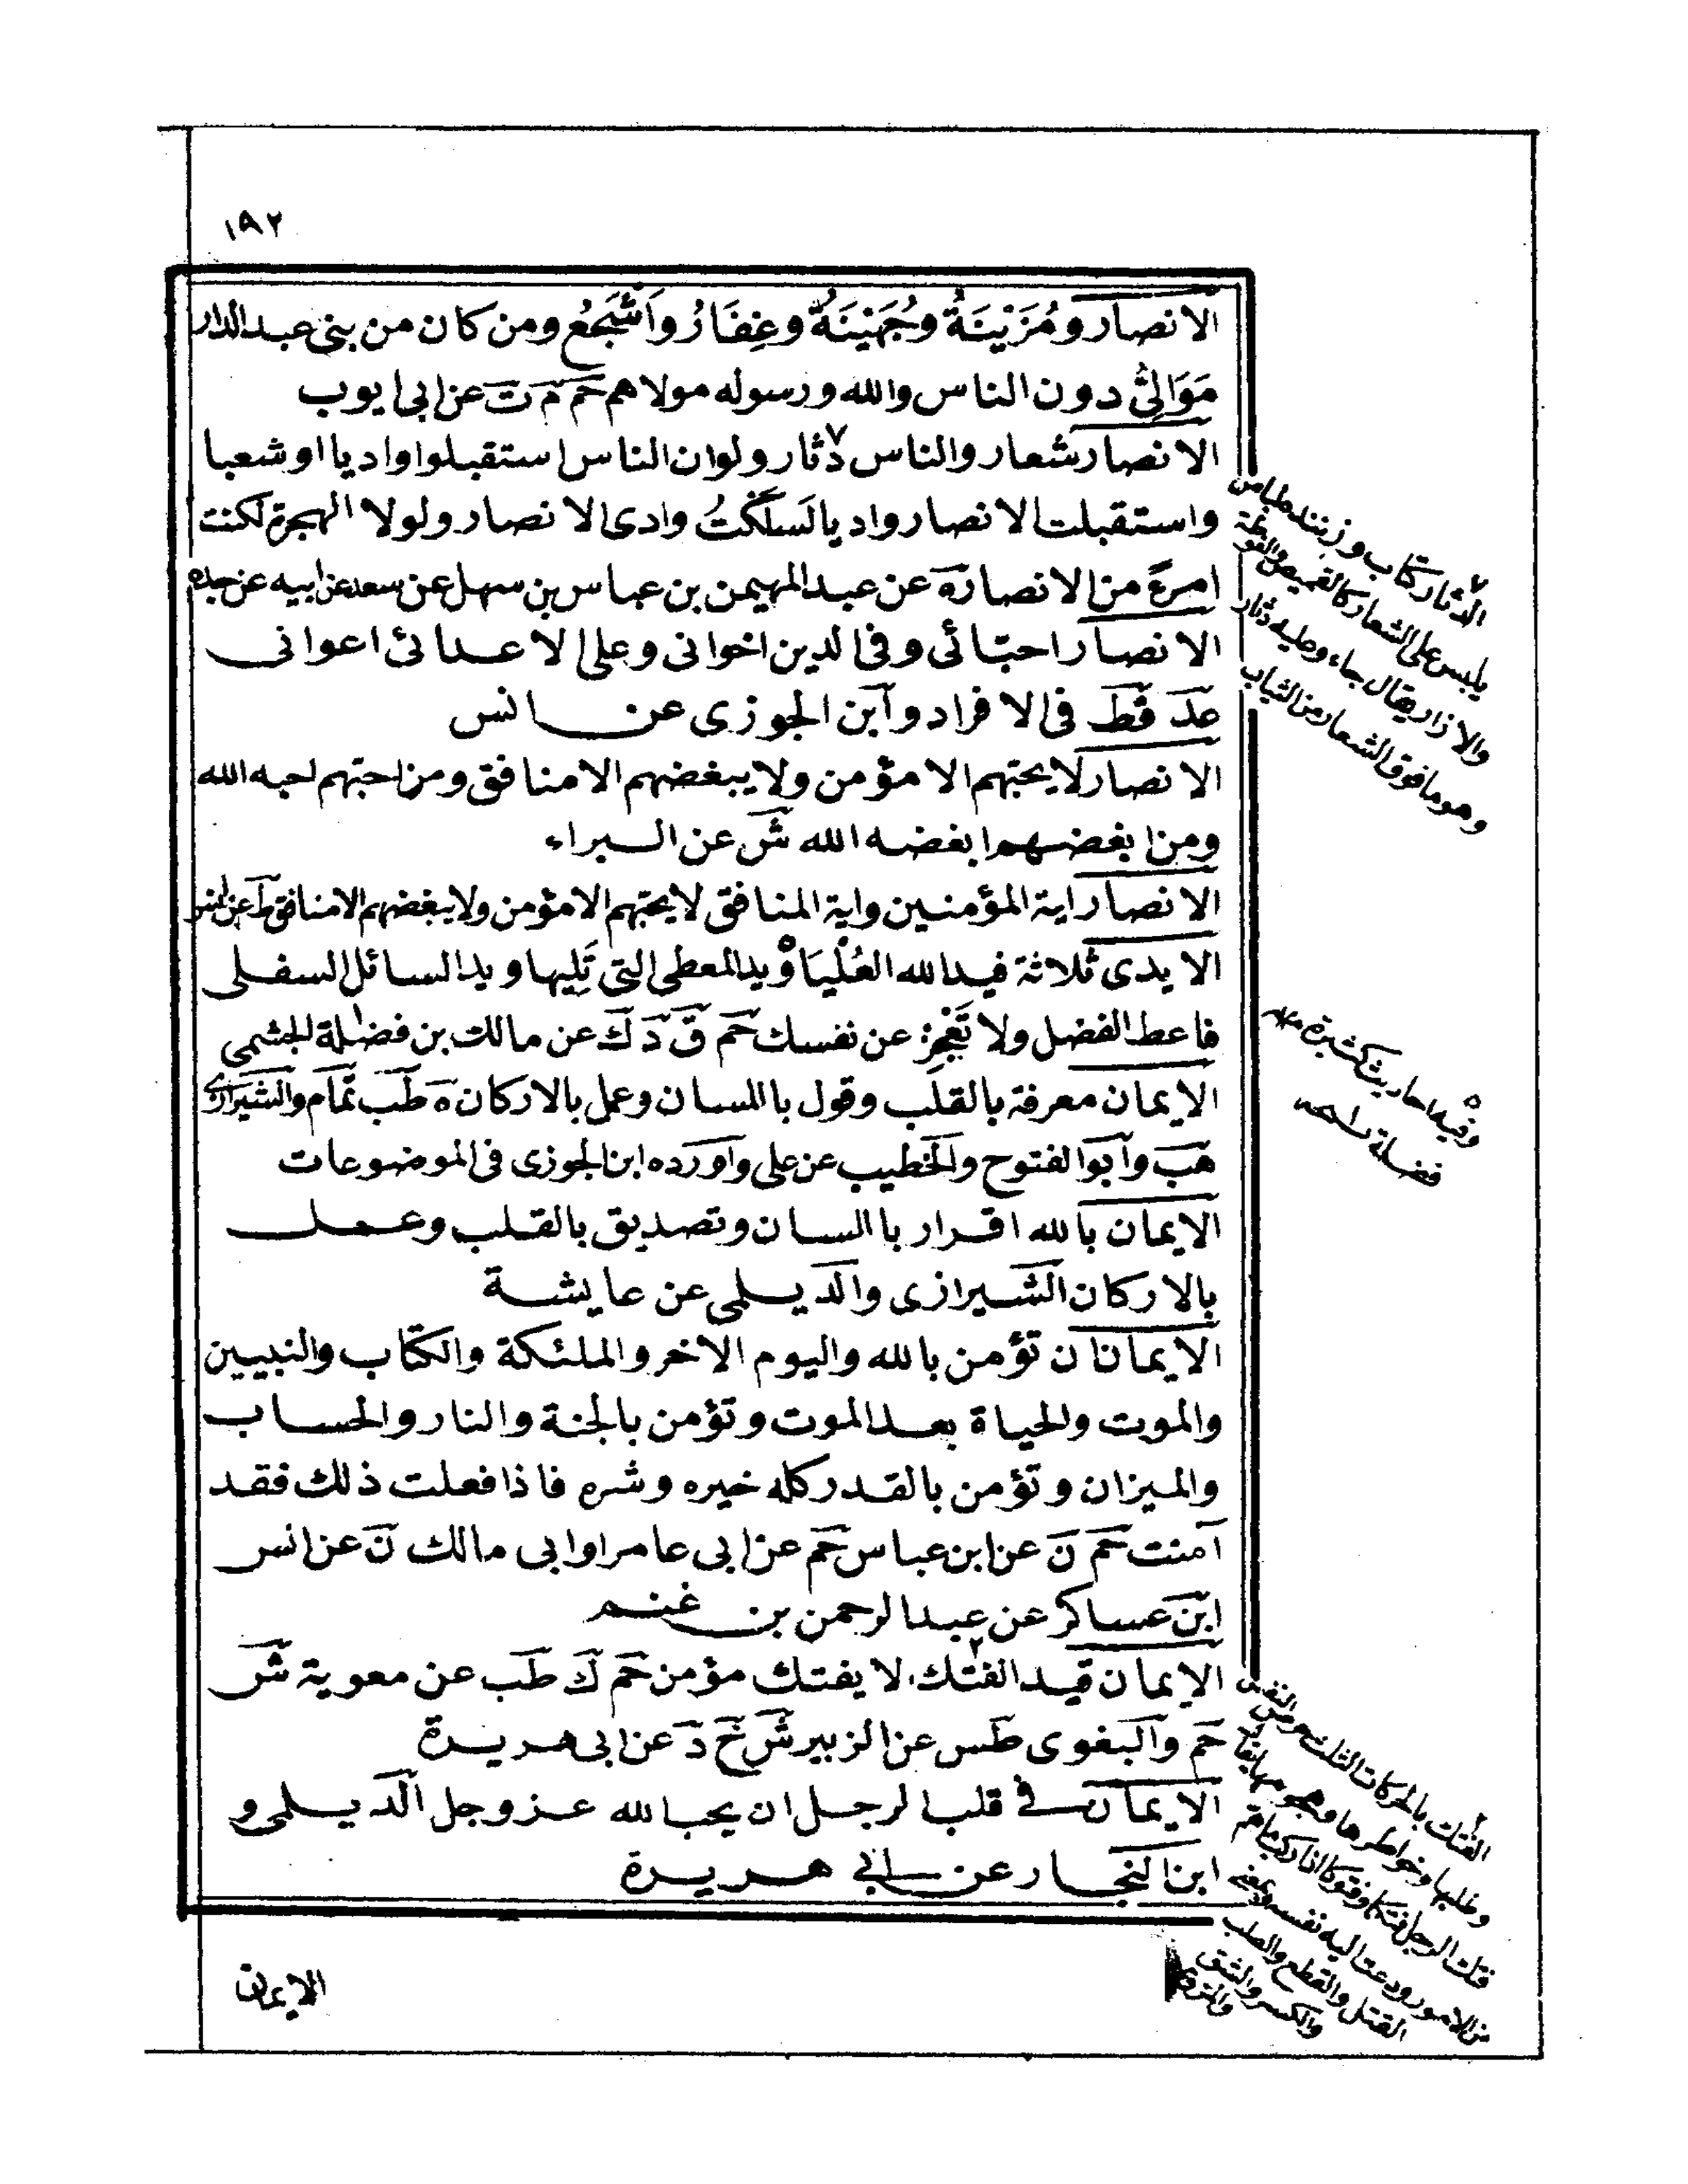 ١٩٢
الانصار ومُزَيْنَةُ وجُهَيْنَةُ وغِفَارُ واَشْجَعُ ومن كان من بنى عبدالدار
مَوَالِيَّ دون الناس والله ورسوله مولاهم حم م ت عن ابى ايوب
الانصار شعار والناس دثار ولوان الناس استقبلوا واديا او شعبا
واستقبلت الانصار واديا لَسَلَكْتُ وادى الانصار ولولا الهجرة لكنت
امرءً من الانصار ه عن عبدالمهيمن بن عباس بن سهل عن سعد عن ابيه عن جده
الانصار احبّائى وفى الدين اخوانى وعلى الاعدائ اعوانى
عد قط فى الافراد وابن الجوزى عن انس
الانصار لا يحبّهم الا مؤمن ولا يبغضهم الا منافق ومن احبّهم احبه الله
ومن ابغضهم ابغضه الله ش عن البراء
الانصار اية المؤمنين واية المنافق لا يحبّهم الا مؤمن ولا يبغضهم الا منافق ط عن انس
الايدى ثلاثة فيدالله العُلْيَا ويد المعطى التى تَلِيها ويد السائل السفلى
فاعط الفضل ولا تَعْجِزْ عن نفسك حم ق د ك عن مالك بن فضلة الجشمى
الايمان معرفة بالقلب وقول باللسان وعمل بالاركان ه طب تمّام والشيرازى
هب وابوالفتوح والخطيب عن على واورده ابن الجوزى فى الموضوعات
الايمان بالله اقرار باالسان وتصديق بالقلب وعمل
بالاركان الشيرازى والديلمى عن عايشة
الايمان ان تؤمن بالله واليوم الاخر والملئكة والكتاب والنبيين
والموت والحياة بعد الموت وتؤمن بالجنة والنار والحساب
والميزان وتؤمن بالقدر كله خيره وشره فاذا فعلت ذلك فقد
آمنت حم ن عن ابن عباس حم عن ابى عامر او ابى مالك ن عن انس
ابن عساكر عن عبدالرحمن بن غنم
الايمان قيد الفتك لا يفتك مؤمن حم ك طب عن معوية ش
حم والبغوى طس عن الزبير ش خ د عن ابى هريرة
الايمان فى قلب الرجل ان يحب الله عز وجل الديلمى و
ابن النجار عن ابى هريرة
الدثار ككتاب وزننده
يلبس على الشعار كالقميص
والازار يقال جاء وعليه دثار
وهو ما فوق الشعار من الثياب
وفيه احاديث كثيرة
فضلة
الفتك بالحركات الثلث
فتك الرجل
من الامور ودعت اليه نفسه
القتل والقطع والصلب
والكسر والشق
الايمان